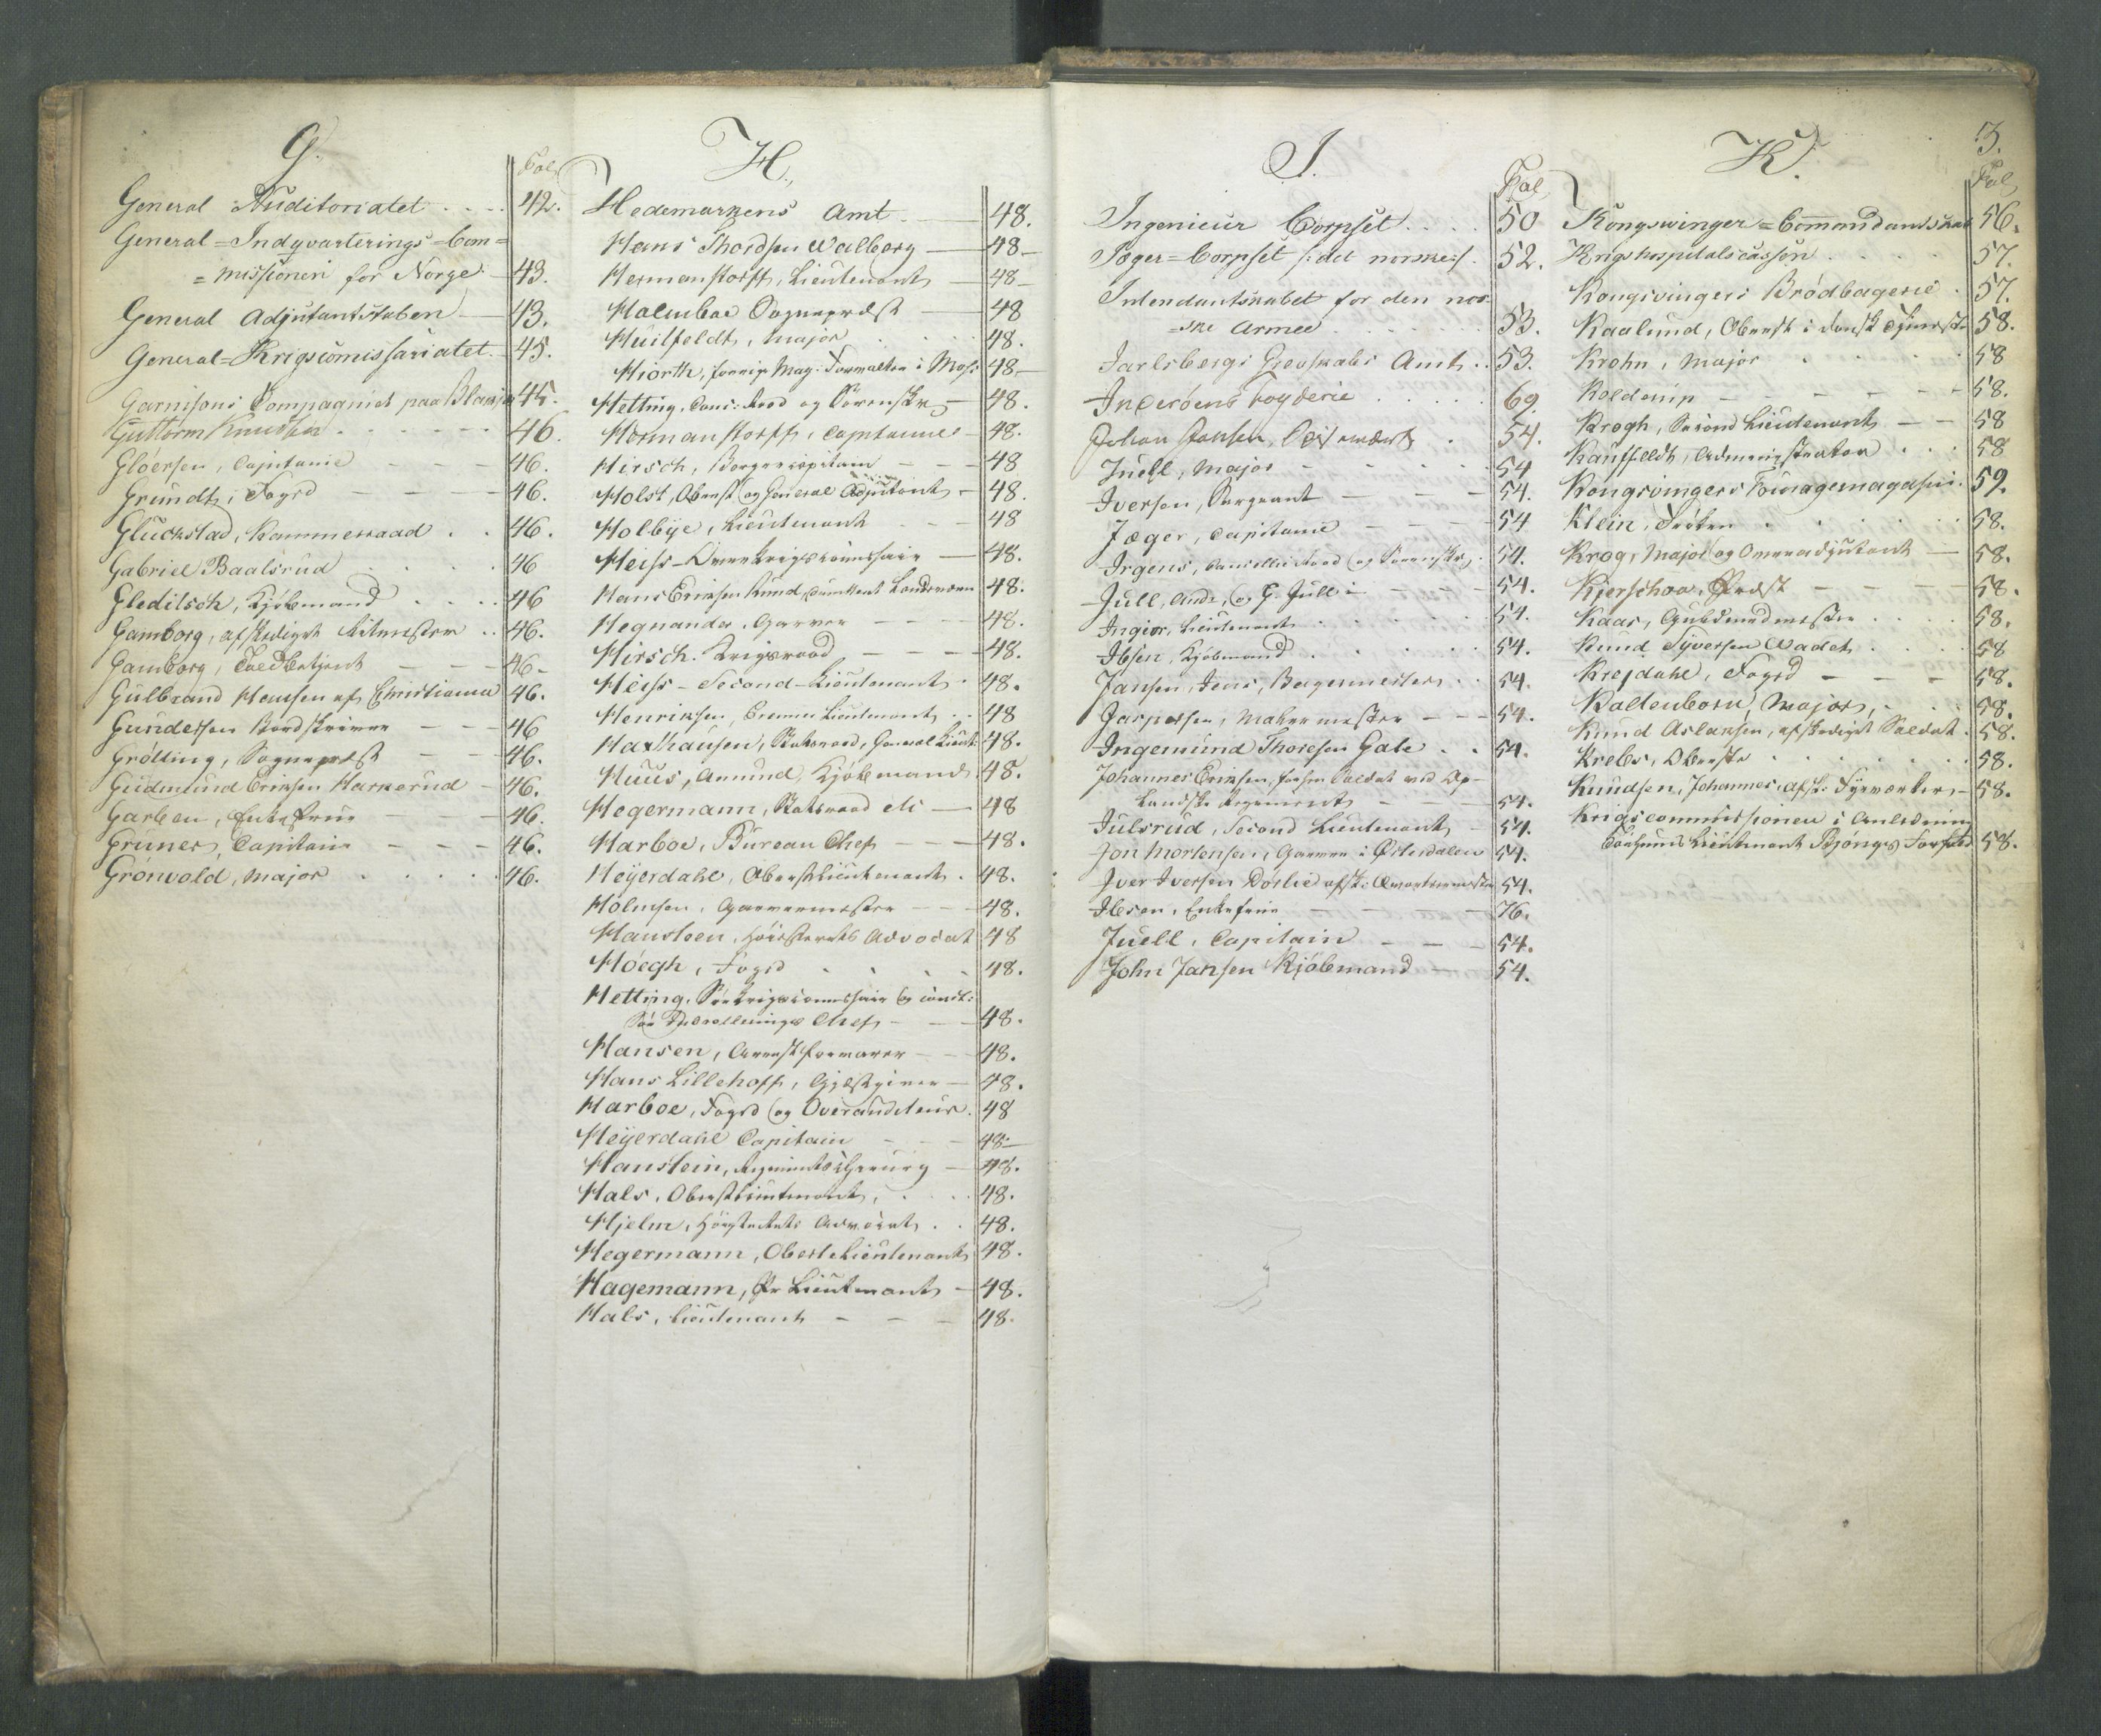 G.
Fol.
General Auditoriatet 42.
General=Indqvarterings=Com=
=missionen for Norge 43.
General Adjutantstaben 43.
General=Krigscomissariatet 45.
Garnisons Compagniet paa Blakjer 45.
Guttorm Knudsen 46.
Glöersen, Capitaine 46.
Grundt, Foged 46.
Gluckstad, Kammerraad 46.
Gabriel Baalsrud 46
Gleditsch, Kjöbmand 46
Gamborg, afskediget 46.
Gamborg, Toldbetjent 46
Gulbrand Hansen af Christiania 46.
Gundersen Bordskriver 46
Grölling, Sognepræst 46.
Gudmund Eriksen Harkerud 46.
Garben, Enkefrue 46.
Gruner, Capitain 46.
Grönvold, Major 46.
H.
Hedemarkens Amt 48.
Hans Thordsen Walberg 48
Hermanstorff, Lieutenant 48
Holmboe Sognepræst 48
Huitfeldt, Major 48.
Hiorth, forrige Mag: Forvalter i Moss 48
Hetting, Canc: Raad og Sorenskr. 48.
Hermanstorff, Capitaine 48.
Hirsch, Borgercapitain 48
Holst, Oberst og General Adjutant 48.
Holbye, Lieutenant 48
Heiss Overkrigscommissair 48.
Hans Eriksen Rund, Landværn 48.
Hegnander, Garver 48.
Hirsch. Krigsraad 48.
Heiss Second-Lieutenant 48.
Henriksen, Premier Lieutenant 48
Haxthausen, Statsraad, General Lieut: 48.
Huus, Amund, Kjöbmand 48.
Hegermann, Statsraad etc 48
Harboe, Bureau Chef 48.
Heyerdahl, Oberstlieutenant 48.
Holmsen, Garvermester 48.
Hansteen, Höiesterets Advocat 48
Höegh, Foged 48.
Hetting, Overkrigscommissair og const:
Chef 48.
Hansen, Arrestforvarer 48.
Hans Lillehoff, Gjæstgiver 48.
Harboe, Foged og Overauditeur 48
Heyerdahl Capitain 48
Hanstein, Regimentschirurg 48.
Hals, Oberstlieutenant 48.
Hjelm, Höiesterets Advocat 48.
Hegermann, Oberstlieutenant 48.
Hagemann, Pr Lieutenant 48.
Hals, Lieutenant 48.
I.
Fol
Ingenieur Corpset 50
Jæger=Corpset /: det norske :/ 52.
Intendantskabet for den nor=
=ske Armee 53.
Jarlsbergs Grevskabs Amt 53.
Inderöens Fogderie 69
Johan Jansen, 54.
Juell, Major 54
Iversen, Sergeant 54.
Jæger, Capitaine 54
Irgens, Cancellieraad og Sorenskr. 54.
Jull, And:, og G. Jull 54.
Ingier, Lieutenant 54.
Ibsen, Kjöbmand 54.
Jansen, Jens, Bagermester 54.
Jaspersen, Malermester 54.
Ingemund Thoresen Gale 54.
Johannes Eriksen, forhen Soldat ved Op=
landske Regiment 54.
Julsrud, Second Lieutenant 54.
Jon Mortensen, Garver i Österdalen 54.
Iver Iversen Dörlie afsk: Qvarteermester 54.
Ibsen, Enkefrue 76.
Juell, Capitain 54.
John Jansen Kjöbmand 54.
K.
3.
Fol
Kongswinger=Commandantskab 56.
Krigshospitalscassen 57.
Kongsvingers Brödbagerie 57.
Kaalund, Oberst i dansk Tjeneste 58.
Krohn, Major 58
Kolderup 58.
Krogh, Second Lieutenant 58
Kauffeldt, Administrator 58
Kongsvingers Fouragemagasin 59.
Klein, Fröken 58.
Krog, Major og Overadjutant 58.
Kjerschow, Præst 58.
Kaas, 58.
Knud Syversen Wadet 58
Krejdahl, Foged 58.
Kaltenborn, Major, 58.
Knud Aslaksen, afskediget Soldat 58.
Krebs, Oberste 58.
Knudsen, Johannes, afsk: Fyrværker 58.
Krigscommissionen i Anledning
Lieutenant Bjöngs Forhold 58.